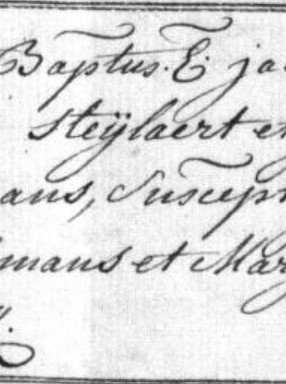 Baptus. E. ja
Steÿlaert et
ans, Suscept
mans et Mar